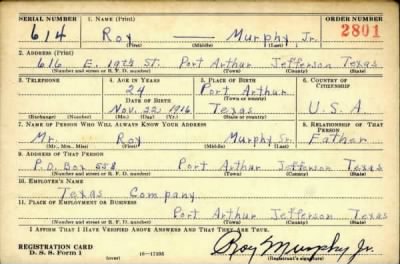 SERIAL NUMBER 1. NAME (Print) ORDER NUMBER
614 Roy — Murphy, Jr. 2801
(First) (Middle) (Last)
2. ADDRESS (Print)
616 E. 19th St. Port Arthur Jefferson Texas
(Number and street or R. F. D. number) (Town) (County) (State)
3. TELEPHONE 4. AGE IN YEARS 5. PLACE OF BIRTH 6. COUNTRY OF CITIZENSHIP
24 Port Arthur
DATE OF BIRTH (Town or county)
Nov. 22, 1916 Texas U.S.A.
(Exchange) (Number) (Mo.) (Day) (Yr.) (State or country)
7. NAME OF PERSON WHO WILL ALWAYS KNOW YOUR ADDRESS 8. RELATIONSHIP OF THAT PERSON
Mr. Roy Murphy Sr. Father
(Mr., Mrs., Miss) (First) (Middle) (Last)
9. ADDRESS OF THAT PERSON
P.O. Box 558 Port Arthur Jefferson Texas
(Number and street or R. F. D. number) (Town) (County) (State)
10. EMPLOYER'S NAME
Texas Company
11. PLACE OF EMPLOYMENT OR BUSINESS
Port Arthur Jefferson Texas
(Number and street or R. F. D. number) (Town) (County) (State)
I AFFIRM THAT I HAVE VERIFIED ABOVE ANSWERS AND THAT THEY ARE TRUE.
REGISTRATION CARD
D. S. S. Form 1 (over) Roy Murphy Jr.
(Registrant's signature)